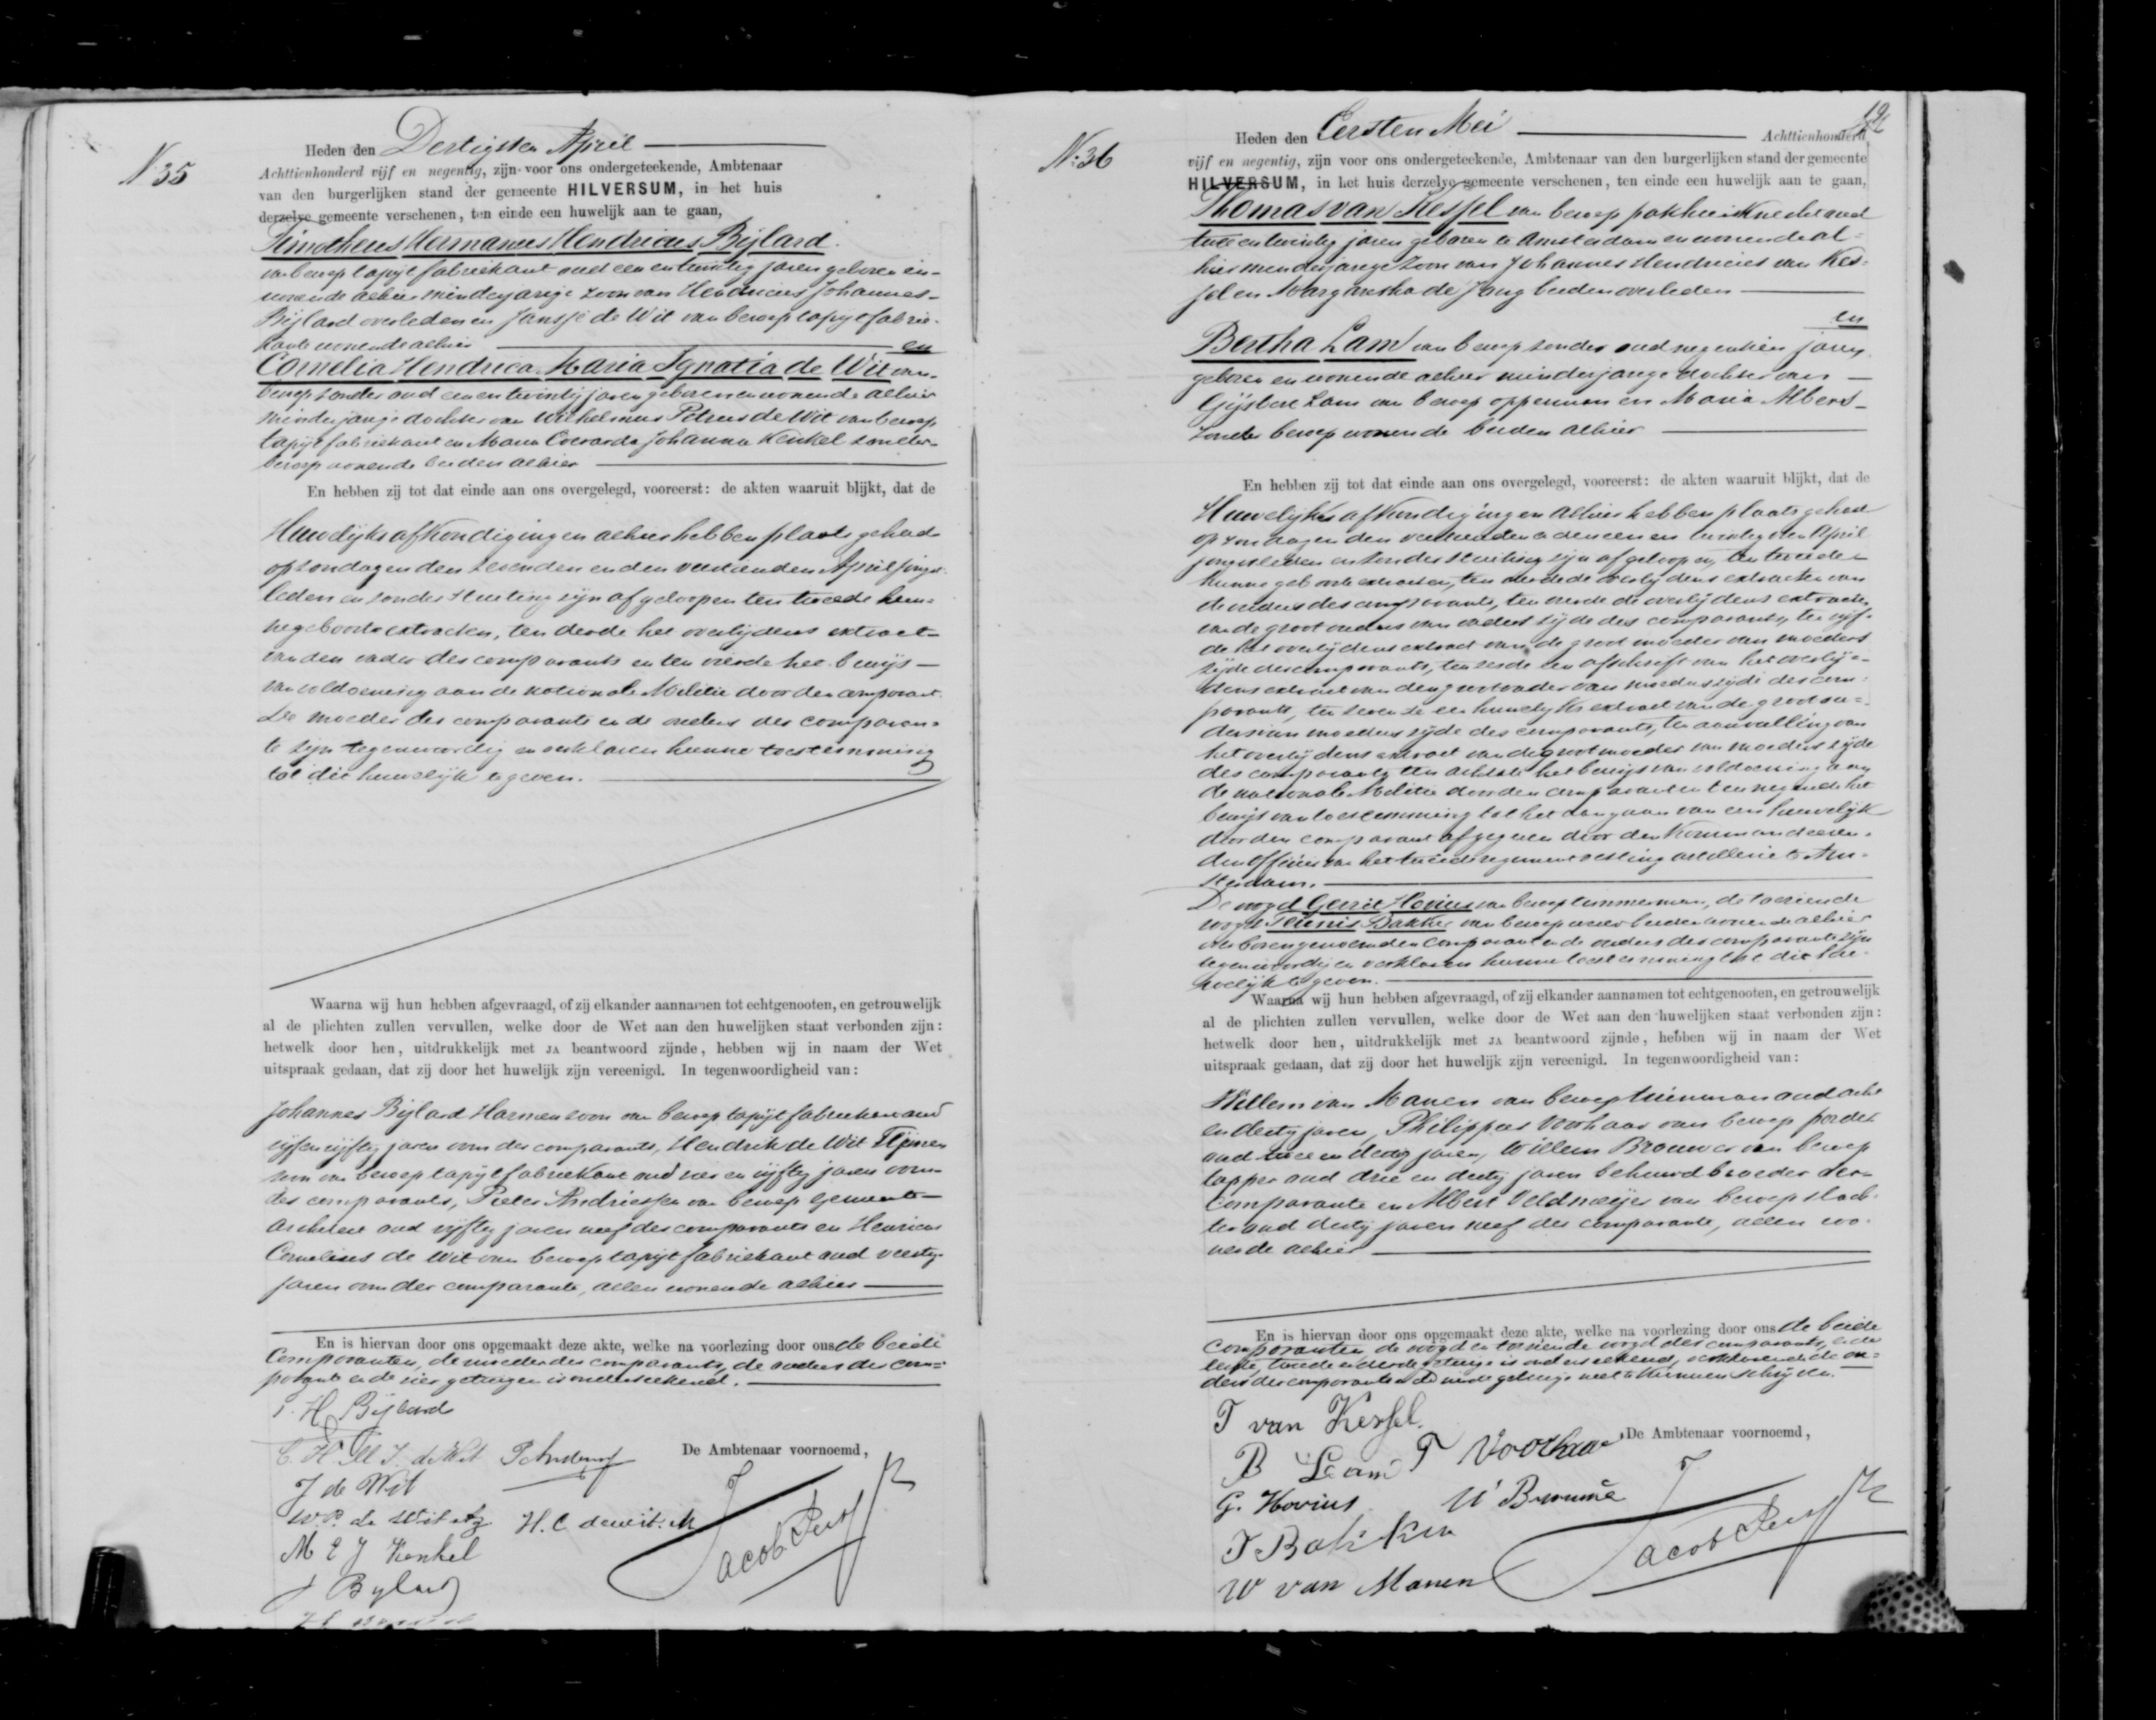 N 35
Heden den Dertigsten April
Achttienhonderd vijf en negentig, zijn voor ons ondergeteekende, Ambtenaar
van den burgerlijken stand der gemeente HILVERSUM, in het huis
derzelve gemeente verschenen, ten einde een huwelijk aan te gaan,
Timotheus Hermanus Hendricus Bijlard.
van beroep tapijtfabriekant oud een en twintig jaren geboren en
wonende alhier minderjarige zoon van Hendricus Johannes
Bijlard overleden en Jansje de Wit van beroep tapijtfabrie-
kante wonende alhier en
Cornelia Hendrica Maria Ignatia de Wit van
beroep zonder oud een en twintig jaren geboren en wonende alhier
minderjarige dochter van Wilhelmus Petrus de Wit van beroep
tapijtfabriekant en Maria Everarda Johanna Kenkel zonder
beroep wonende beiden alhier
En hebben zij tot dat einde aan ons overgelegd, vooreerst: de akten waaruit blijkt, dat de
Huwelijksafkondigingen alhier hebben plaats gehad
op zondagen den zevenden en den veertienden April jongst-
leden en zonder stuiting zijn afgeloopen ten tweede hun-
ne geboorte extracten, ten derde het overlijdens extract
van den vader des comparants en ten vierde het bewijs
van voldoening aan de nationale Militie door den comparant.
De moeder des comparants en de ouders der comparan-
te zijn tegenwoordig en verklaren hunne toestemming
tot dit huwelijk te geven.
Waarna wij hun hebben afgevraagd, of zij elkander aannamen tot echtgenooten, en getrouwelijk
al de plichten zullen vervullen, welke door de Wet aan den huwelijken staat verbonden zijn:
hetwelk door hen, uitdrukkelijk met JA beantwoord zijnde, hebben wij in naam der Wet
uitspraak gedaan, dat zij door het huwelijk zijn vereenigd. In tegenwoordigheid van:
Johannes Bijlard Harmenzoon van beroep tapijtfabriekant oud
vijf en vijftig jaren oom des comparants, Hendrik de Wit Tijmen
zoon van beroep tapijtfabriekant oud vier en vijftig jaren oom
des comparants, Pieter Andriessen van beroep gemeente
Architect oud vijftig jaren neef des comparants en Henricus
Cornelises de Wit van beroep tapijtfabriekant oud veertig
jaren oom der comparante, allen wonende alhier
En is hiervan door ons opgemaakt deze akte, welke na voorlezing door ons de beide
Comparanten, de moeder des comparants, de ouders der com-
parante en de vier getuigen is onderteekend.
T. H. Bijlard
C. H. M. I. de Wit P Andriessen De Ambtenaar voornoemd,
J de Wit
W.P. de Wit Hz. H. C de Wit. M Jacob Perk
M E J Kenkel
J Bylard
N: 36
12
Heden den Eersten Mei Achttienhonderd
vijf en negentig, zijn voor ons ondergeteekende, Ambtenaar van den burgerlijken stand der gemeente
HILVERSUM, in het huis derzelve gemeente verschenen, ten einde een huwelijk aan te gaan,
Thomas van Kessel van beroep pakhuisknecht oud
twee en twintig jaren geboren te Amsterdam en wonende al-
hier minderjarige zoon van Johannes Hendricus van Kes-
sel en Margaretha de Jong beiden overleden
en
Bertha Lam van beroep zonder oud negentien jaren
geboren en wonende alhier minderjarige dochter van
Gijsbert Lam van beroep opperman en Maria Albers
zonder beroep wonende beiden alhier
En hebben zij tot dat einde aan ons overgelegd, vooreerst: de akten waaruit blijkt, dat de
Huwelijks afkondigingen alhier hebben plaats gehad
op zondagen den veertienden en den een en twintigsten April
jongstleden en zonder stuiting zijn afgeloopen, ten tweede
hunne geboorte extracten, ten derde de overlijdens extracten van
de ouders des comparants, ten vierde de overlijdens extracten
van de grootouders van vaders zijde des comparants, ten vijf-
de het overlijdens extract van de groot moeder van moeders
zijde des comparants, ten zesde een afschrift van het overlij-
dens extract van den grootvader van moeders zijde des com-
parants, ten zevende een huwelijks extract van de grootou-
ders van moeders zijde des comparants, ter aanvulling van
het overlijdens extract van de grootmoeder van moeders zijde
des comparants ten achtste het bewijs van voldoening aan
de nationale Militie door den comparant en ten negende het
bewijs van toestemming tot het aangaan van een huwelijk
door den comparant afgegeven door den Kommandeeren-
den officier van het tweede regiment vesting artillerie te Am-
sterdam.
De voogd Gerrit Hovius van beroep timmerman, de toeziende
voogd Teunis Bakker van beroep wever beiden wonende alhier
van bovengenoemden Comparant en de ouders der comparante zijn
tegenwoordig en verklaren hunne toestemming tot dit hu-
welijk te geven.
Waarna wij hun hebben afgevraagd, of zij elkander aannamen tot echtgenooten, en getrouwelijk
al de plichten zullen vervullen, welke door de Wet aan den huwelijken staat verbonden zijn:
hetwelk door hen, uitdrukkelijk met JA beantwoord zijnde, hebben wij in naam der Wet
uitspraak gedaan, dat zij door het huwelijk zijn vereenigd. In tegenwoordigheid van:
Willem van Manen van beroep tuinman oud acht
en dertig jaren, Philippus Voorhaar van beroep
oud twee en dertig jaren, Willem Brouwer van beroep
tapper oud drie en dertig jaren behuwdbroeder der
Comparante en Albert Veldmeijer van beroep slach-
ter oud dertig jaren neef der comparante, allen wo-
nende alhier
En is hiervan door ons opgemaakt deze akte, welke na voorlezing door ons de beide
Comparanten, de voogd en toeziende voogd des comparants, en de
eerste, tweede en derde getuige is onderteekend, verklarende de ou-
ders der comparante en de vierde getuige niet te kunnen schrijven.
T van Kessel
B Lam P Voorhaar De Ambtenaar voornoemd,
G. Hovius W Brouwer
T Bakker Jacob Perk
W van Manen